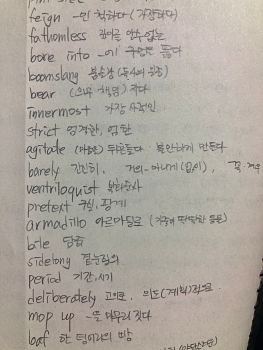 feign ~인 척하다 (가장하다)
fathomless 깊이를 알수없는
bore into ~에 구멍을 뚫다
boomslang 붐슬랑 (독사의 일종)
bear (스러운 책임) 지다
innermost 가장 사적인
strict 엄격한, 엄한
agitate (마음을) 뒤흔들다 불안하게 만든다
barely 간신히, 거의~아니게(없이), 꼭, 겨우
ventriloquist 복화술사
pretext 구실, 핑계
armadillo 아르마딜로 (가죽이 딱딱한 동물)
bile 담즙
sidelong 곁눈질의
period 기간, 시기
deliberately 고의로, 의도(계획)적으로
mop up ~을 마무리 짓다
loaf 한 덩어리의 빵